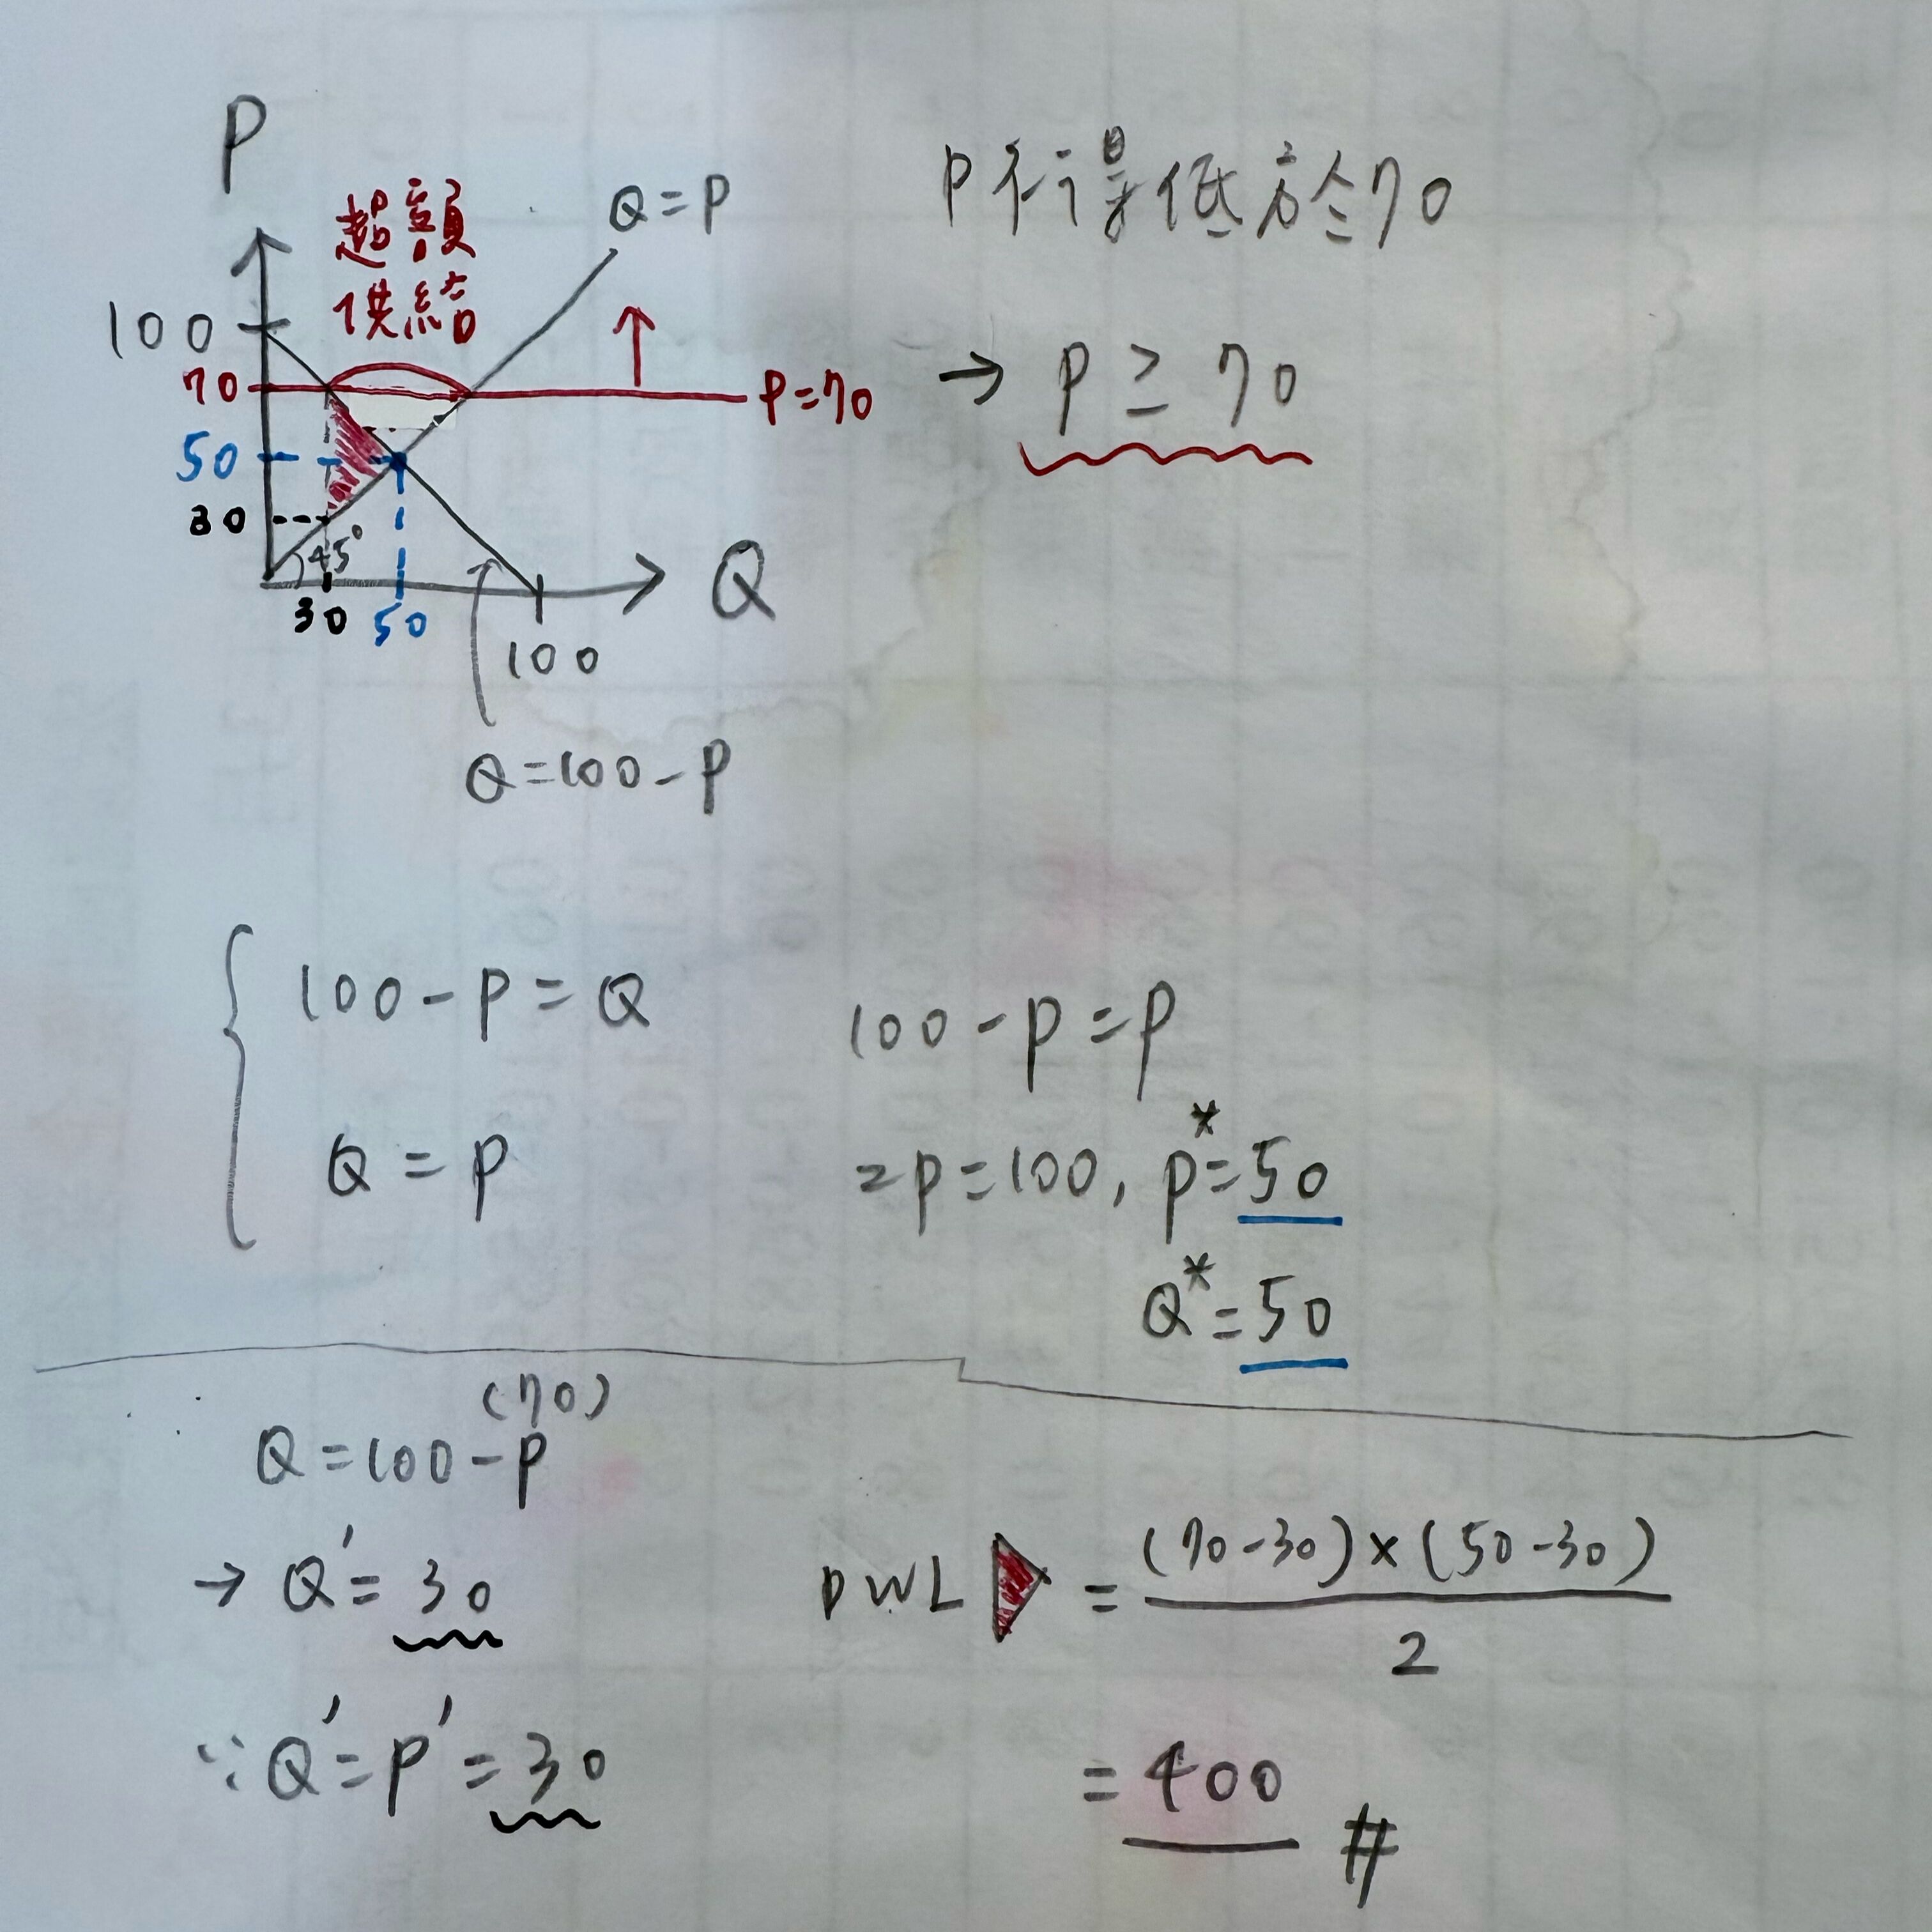 P
超額
供給
Q=P
100
70
P=70
50
30
45°
30
50
100
Q
Q=100-P
P不得低於70
→ P ≥ 70
100-P=Q
Q=P
100-P=P
2P=100, P*=50
Q*=50
(70)
Q=100-P
→ Q'=30
∵ Q'=P'=30
DWL = (70-30)×(50-30)
2
= 400 #